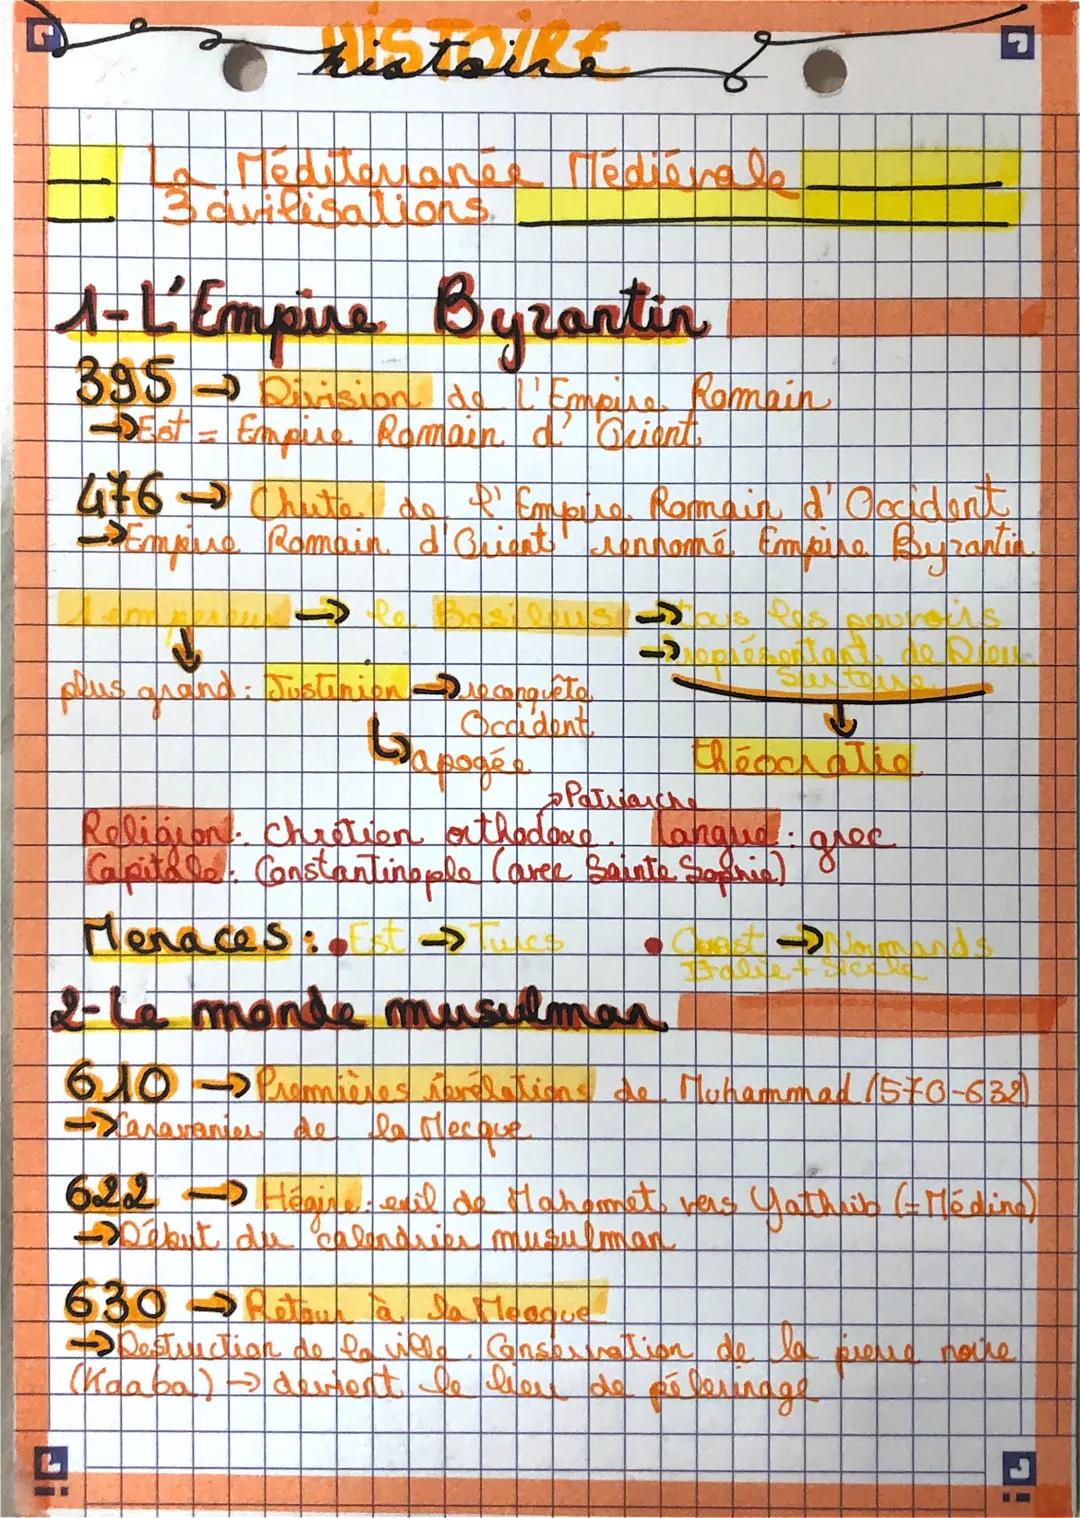 HISTOIRE
histoire
La Méditerranée Médiévale
3 civilisations
1-L'Empire Byzantin
395 → Division de l'Empire Romain
→ Est = Empire Romain d'Orient
476 → Chute de l'Empire Romain d'Occident
→ Empire Romain d'Orient rennomé Empire Byzantin
1 empereur → le Basileus → tous les pouvoirs
→ représentant de Dieu
sur terre
plus grand : Justinien → reconquête
Occident
↳ apogée
théocratie
→ Patriarche
Religion : Chrétien orthodoxe. Langue : grec
Capitale : Constantinople (avec Sainte Sophie)
Menaces : • Est → Turcs • Ouest → Normands
Italie + Sicile
2-Le monde musulman
610 → Premières révélations de Muhammad (570-632)
→ Caravanier de la Mecque
622 → Hégire : exil de Mahomet vers Yathrib (= Médine)
→ Début du calendrier musulman
630 → Retour à la Mecque
→ Destruction de la ville. Conservation de la pierre noire
(Kaaba) → devient le lieu de pélerinage